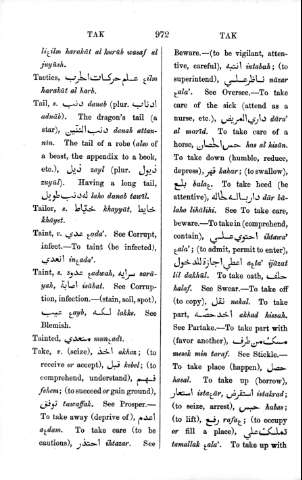 TAK 972 TAK
liƹilm harakāt al harūb wasaf al
juyūsh.
Tactics, علم حركات الحرب ƹilm
harakāt al harb.
Tail, s. ذنب danab (plur. اذناب
adnāb). The dragon's tail (a
star), ذنب التنين danab attan-
nīn. The tail of a robe (also of
a beast, the appendix to a book,
etc.), ذيل zayl (plur. ذيول
zuyūl). Having a long tail,
له ذنب طويل laho danab tawīl.
Tailor, s. خياط khayyāt, خايط
khāyet.
Taint, v. عدى ƹada'. See Corrupt,
infect.—To taint (be infected),
انعدي inƹada'.
Taint, s. عدوه ƹadwah, سرايه sarā-
yah, اصابة isābat. See Corrup-
tion, infection.—(stain, soil, spot),
عيب ƹayb, لكه lakke. See
Blemish.
Tainted, منعدي munƹadī.
Take, v. (seize), اخذ akhaz; (to
receive or accept), قبل kebel; (to
comprehend, understand), فهم
fehem; (to succeed or gain ground),
توفق tawaffak. See Prosper.—
To take away (deprive of), اعدم
aƹdam. To take care (to be
cautious), احتذر ihtazar. See
Beware.—(to be vigilant, atten-
tive, careful), انتبه intabah; (to
superintend), ناظر علي nāzar
ƹala'. See Oversee.—To take
care of the sick (attend as a
nurse, etc.), داري المريض dāra'
al marīd. To take care of a
horse, حس الحصان has al hisān.
To take down (humble, reduce,
depress), قهر kahar; (to swallow),
بلع balaƹ. To take heed (be
attentive), دار باله لحاله dār bā-
laho lihālihi. See To take care,
beware.—To take in (comprehend,
contain), احتوي علي ihtawa'
ƹala'; (to admit, permit to enter),
اعطي اجازة للدخول aƹta' ijāzat
lil dakhūl. To take oath, حلف
halaf. See Swear.—To take off
(to copy), نقل nakal. To take
part, اخذ حصه akhad hissah.
See Partake.—To take part with
(favor another), مسك من طرف
mesek min taraf. See Stickle.—
To take place (happen), حصل
hasal. To take up (borrow),
استعار istaƹār, استقرض istakrad;
(to seize, arrest), حبس habas;
(to lift), رفع rafaƹ; (to occupy
or fill a place), تملك علي
tamallak ƹala'. To take up with